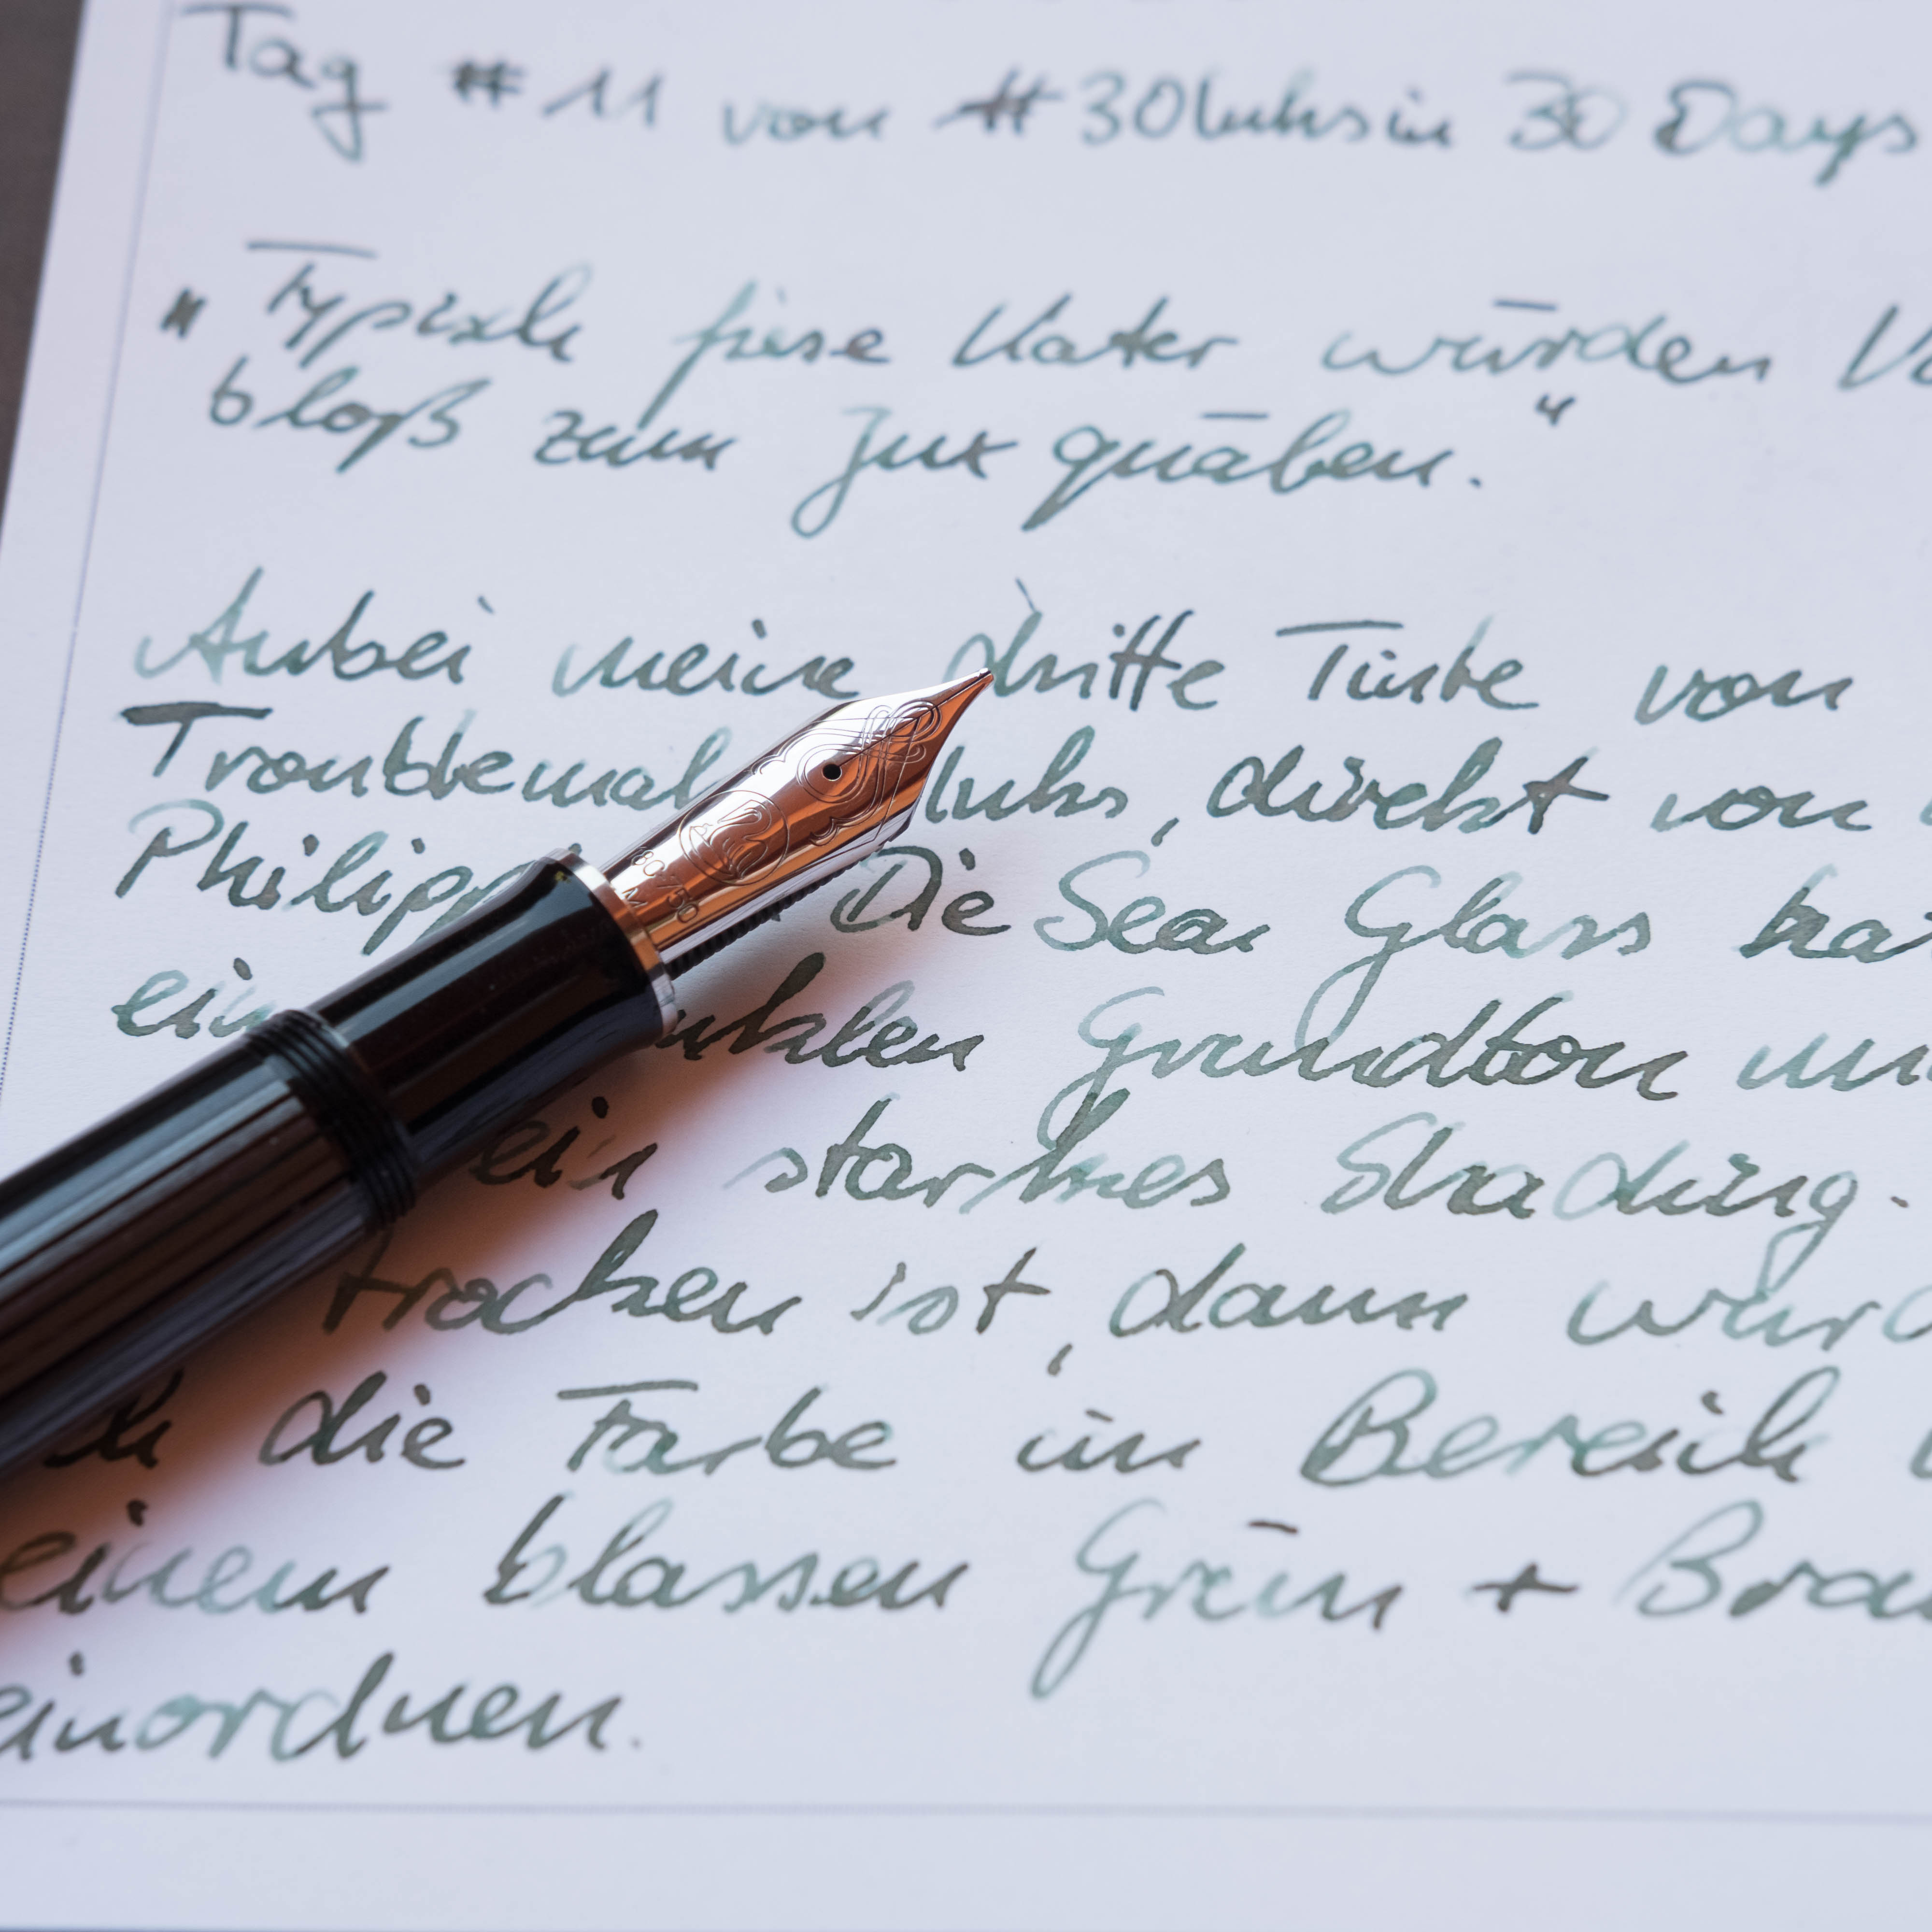 Tag #11 von #30Inksin 30 Days
"Typisch fiese Kater würden
bloß zum Jux quäken."
Anbei meine dritte Tinte von
Troublemak Inks, direkt von
Philipp Die Sea Glass hat
einen dunklen Grundton und
ein starkes Shading.
trocken ist, dann würd
ich die Farbe im Bereich
einem blassen Grün + Brau
einordnen.
80/750
M